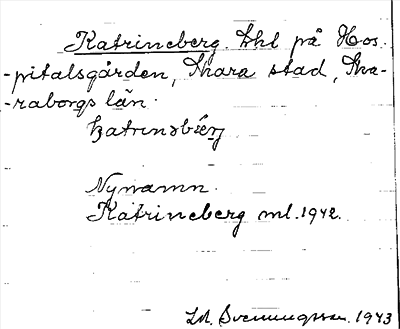 Katrineberg. Lhl på Hos-
-pitalsgården, Skara stad, Ska-
-raborgs län.
Nynamn.
Katrineberg ml. 1942.
Svenungsson. 1943